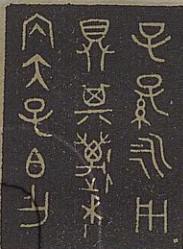 內大子白乍
鼎其萬年
子孫永用